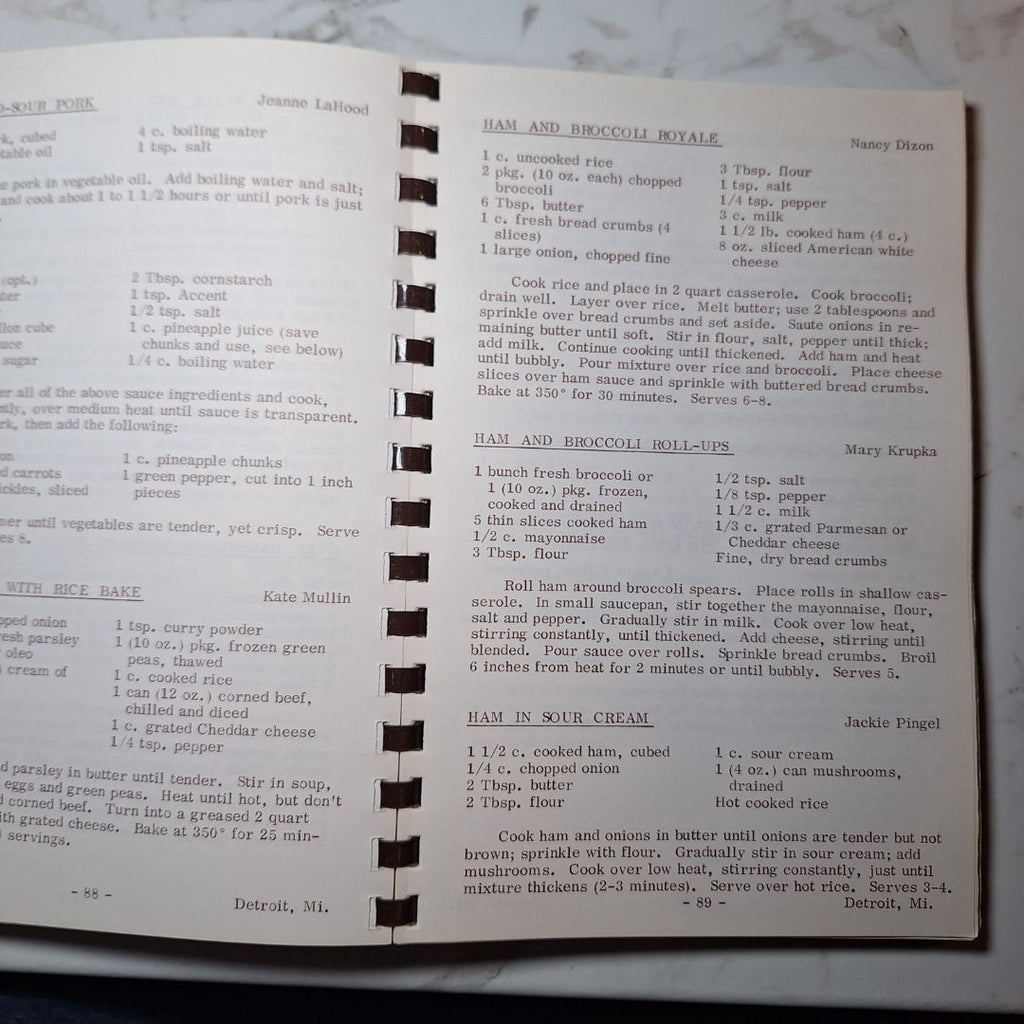 -SOUR PORK Jeanne LaHood
cubed 4 c. boiling water
oil 1 tsp. salt
pork in vegetable oil. Add boiling water and salt;
and cook about 1 to 1 1/2 hours or until pork is just
(opt.) 2 Tbsp. cornstarch
1 tsp. Accent
1/2 tsp. salt
cube 1 c. pineapple juice (save
chunks and use, see below)
sugar 1/4 c. boiling water
all of the above sauce ingredients and cook,
over medium heat until sauce is transparent.
then add the following:
1 c. pineapple chunks
carrots 1 green pepper, cut into 1 inch
sliced pieces
until vegetables are tender, yet crisp. Serve
8.
WITH RICE BAKE Kate Mullin
onion 1 tsp. curry powder
parsley 1 (10 oz.) pkg. frozen green
oleo peas, thawed
cream of 1 c. cooked rice
1 can (12 oz.) corned beef,
chilled and diced
1 c. grated Cheddar cheese
1/4 tsp. pepper
parsley in butter until tender. Stir in soup,
eggs and green peas. Heat until hot, but don't
corned beef. Turn into a greased 2 quart
grated cheese. Bake at 350° for 25 min-
servings.
- 88 -
Detroit, Mi.
HAM AND BROCCOLI ROYALE
Nancy Dizon
1 c. uncooked rice
2 pkg. (10 oz. each) chopped
broccoli
6 Tbsp. butter
1 c. fresh bread crumbs (4
slices)
1 large onion, chopped fine
3 Tbsp. flour
1 tsp. salt
1/4 tsp. pepper
3 c. milk
1 1/2 lb. cooked ham (4 c.)
8 oz. sliced American white
cheese
Cook rice and place in 2 quart casserole. Cook broccoli;
drain well. Layer over rice. Melt butter; use 2 tablespoons and
sprinkle over bread crumbs and set aside. Saute onions in re-
maining butter until soft. Stir in flour, salt, pepper until thick;
add milk. Continue cooking until thickened. Add ham and heat
until bubbly. Pour mixture over rice and broccoli. Place cheese
slices over ham sauce and sprinkle with buttered bread crumbs.
Bake at 350° for 30 minutes. Serves 6-8.
HAM AND BROCCOLI ROLL-UPS
Mary Krupka
1 bunch fresh broccoli or
1 (10 oz.) pkg. frozen,
cooked and drained
5 thin slices cooked ham
1/2 c. mayonnaise
3 Tbsp. flour
1/2 tsp. salt
1/8 tsp. pepper
1 1/2 c. milk
1/3 c. grated Parmesan or
Cheddar cheese
Fine, dry bread crumbs
Roll ham around broccoli spears. Place rolls in shallow cas-
serole. In small saucepan, stir together the mayonnaise, flour,
salt and pepper. Gradually stir in milk. Cook over low heat,
stirring constantly, until thickened. Add cheese, stirring until
blended. Pour sauce over rolls. Sprinkle bread crumbs. Broil
6 inches from heat for 2 minutes or until bubbly. Serves 5.
HAM IN SOUR CREAM
Jackie Pingel
1 1/2 c. cooked ham, cubed
1/4 c. chopped onion
2 Tbsp. butter
2 Tbsp. flour
1 c. sour cream
1 (4 oz.) can mushrooms,
drained
Hot cooked rice
Cook ham and onions in butter until onions are tender but not
brown; sprinkle with flour. Gradually stir in sour cream; add
mushrooms. Cook over low heat, stirring constantly, just until
mixture thickens (2-3 minutes). Serve over hot rice. Serves 3-4.
- 89 -
Detroit, Mi.